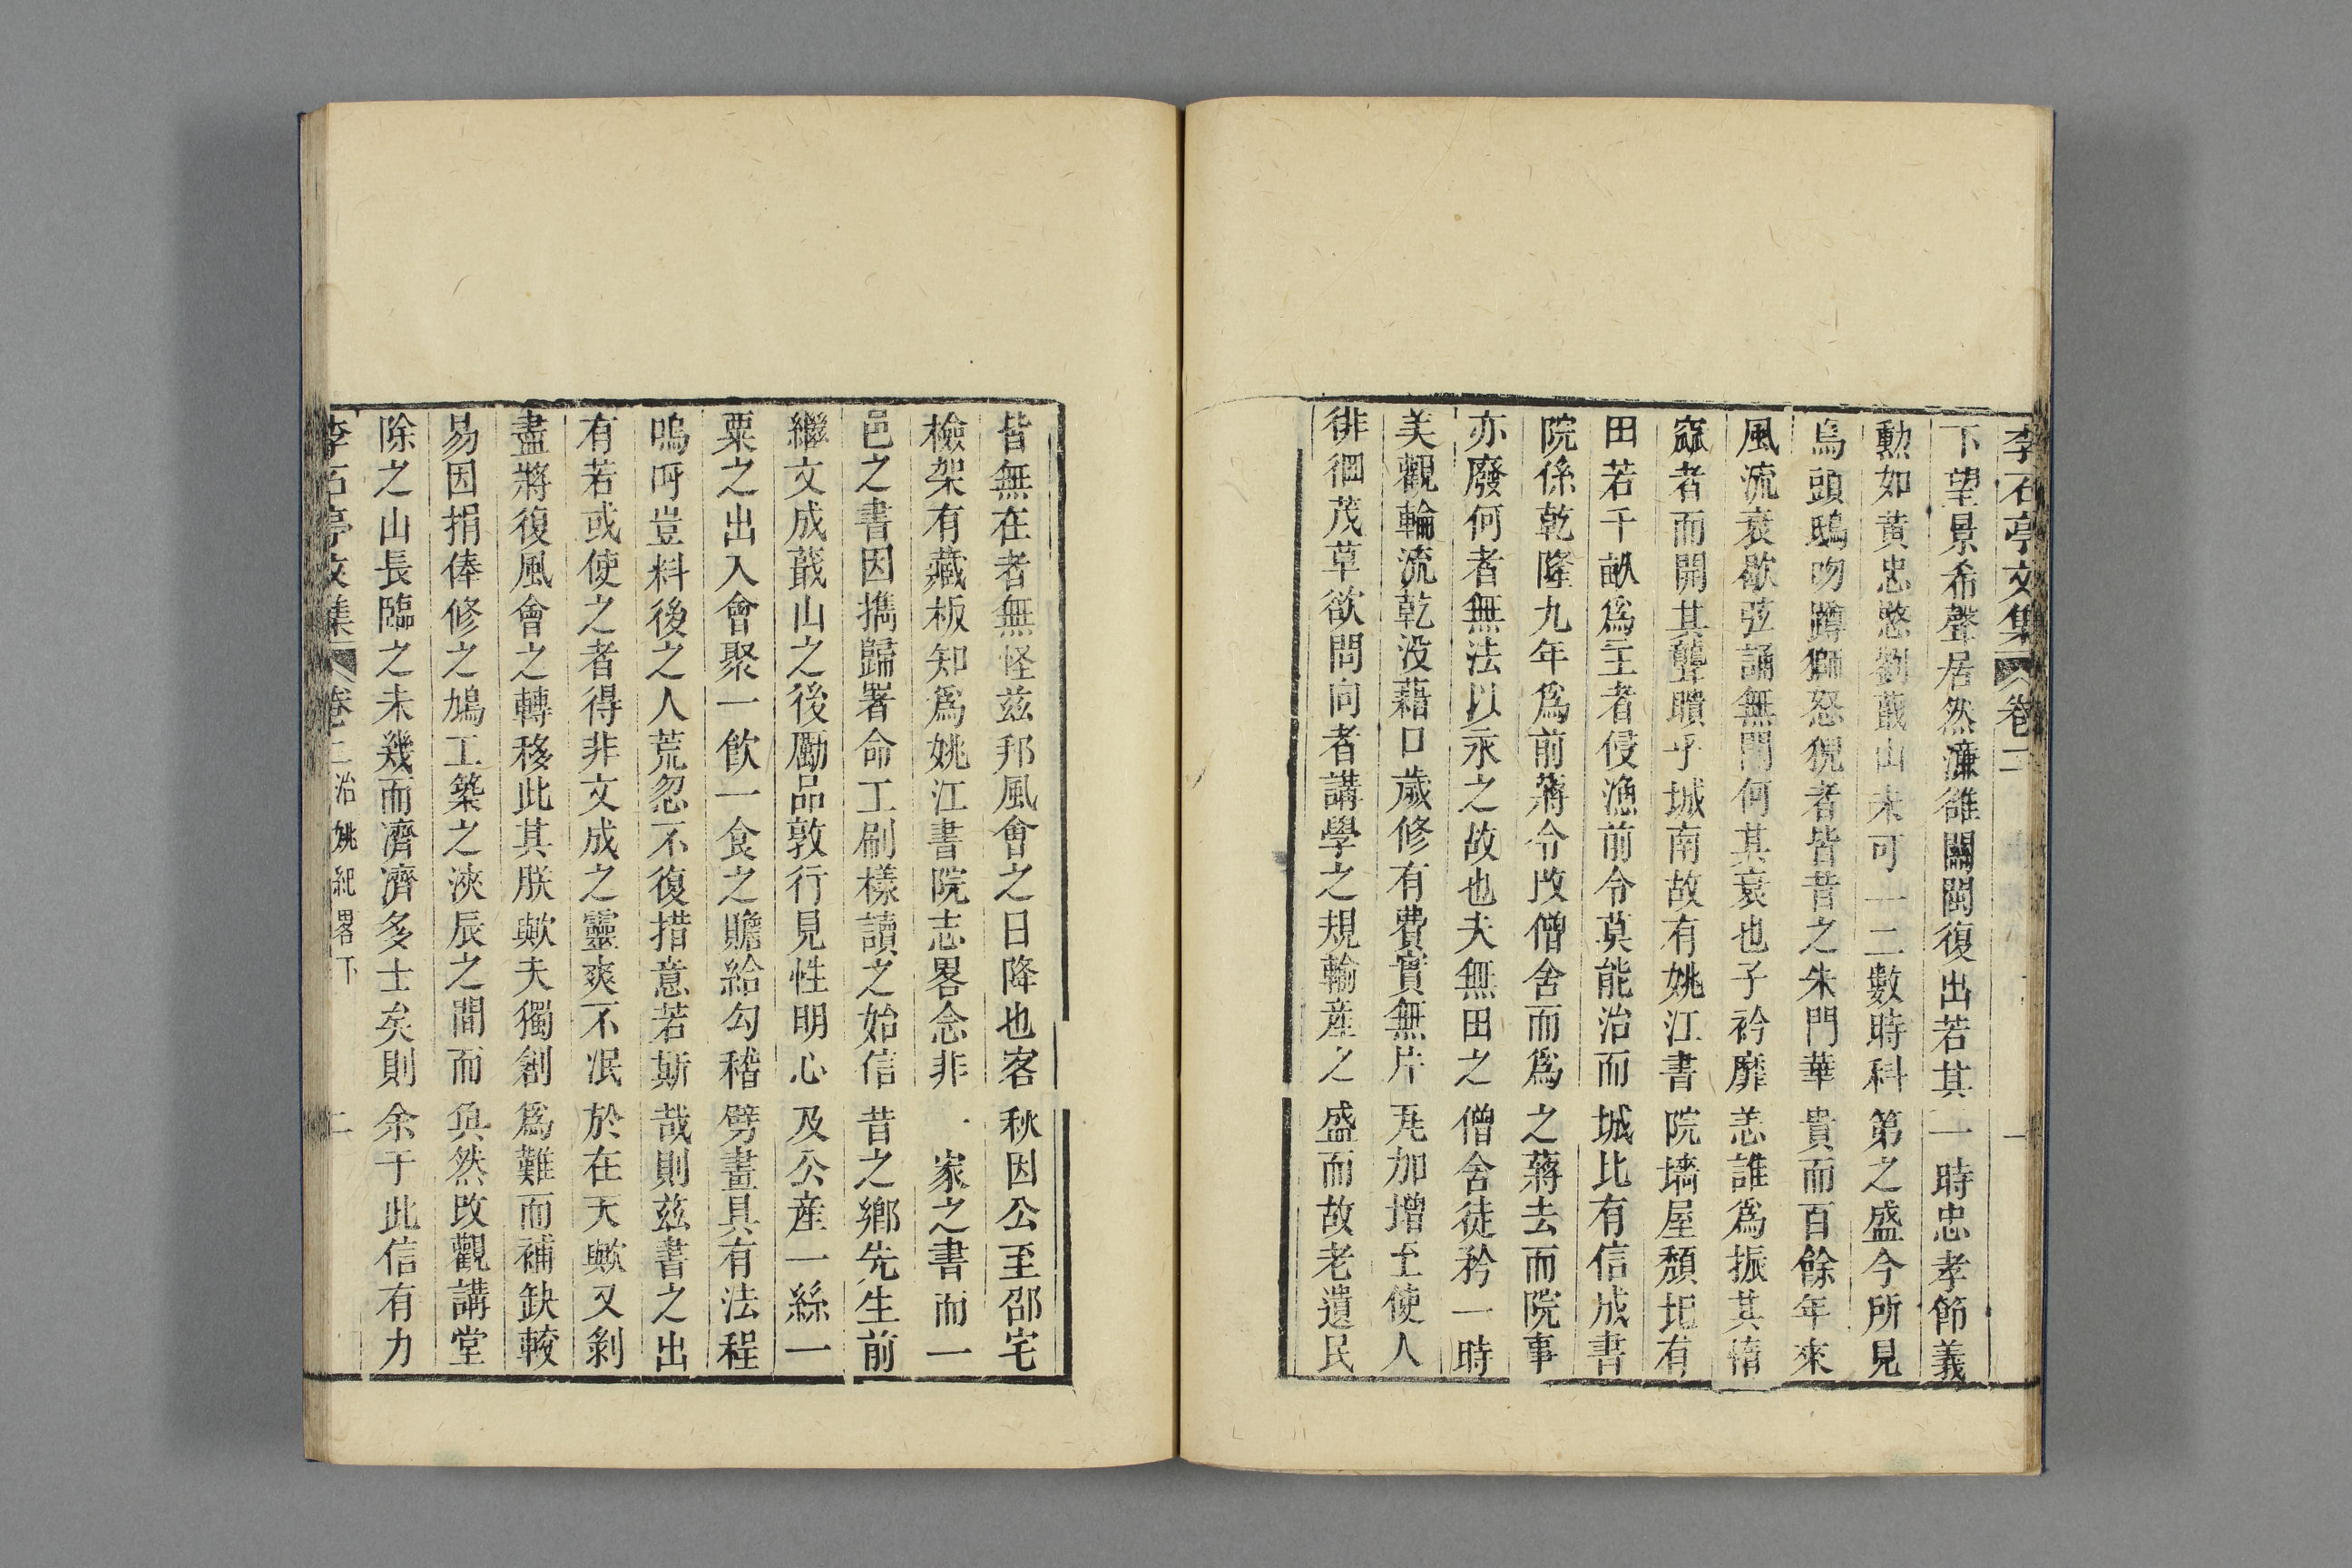 李石亭文集 卷二 一
下望景希聲居然濂雒關閩復出若其一時忠孝節義
勳如黃忠愍劉蕺山未可一二數時科第之盛今所見
烏頭鴟吻蹲獅怒猊者皆昔之朱門華貴而百餘年來
風流衰歇弦誦無聞何其衰也子衿靡恙誰爲振其惰
窳者而開其聾聵乎城南故有姚江書院墻屋頹圯有
田若干畝爲主者侵漁前令莫能治而城比有信成書
院係乾隆九年爲前蔣令改僧舍而爲之蔣去而院事
亦廢何者無法以永之故也夫無田之僧舍徒矜一時
美觀輪流乾没藉口歲修有費實無片瓦加增至使人
徘徊茂草欲問向者講學之規輸產之盛而故老遺民
皆無在者無怪茲邦風會之日降也客秋因公至邵宅
檢架有藏板知爲姚江書院志畧念非一家之書而一
邑之書因攜歸署命工刷樣讀之始信昔之鄉先生前
繼文成蕺山之後勵品敦行見性明心及公產一絲一
粟之出入會聚一飲一食之贍給勾稽劈畫具有法程
嗚呼豈料後之人荒忽不復措意若斯哉則茲書之出
有若或使之者得非文成之靈爽不泯於在天歟又剝
盡將復風會之轉移此其朕歟夫獨創爲難而補缺較
易因捐俸修之鳩工築之浹辰之間而奐然改觀講堂
除之山長臨之未幾而濟濟多士矣則余于此信有力
李石亭文集 卷二 治姚紀畧下 二